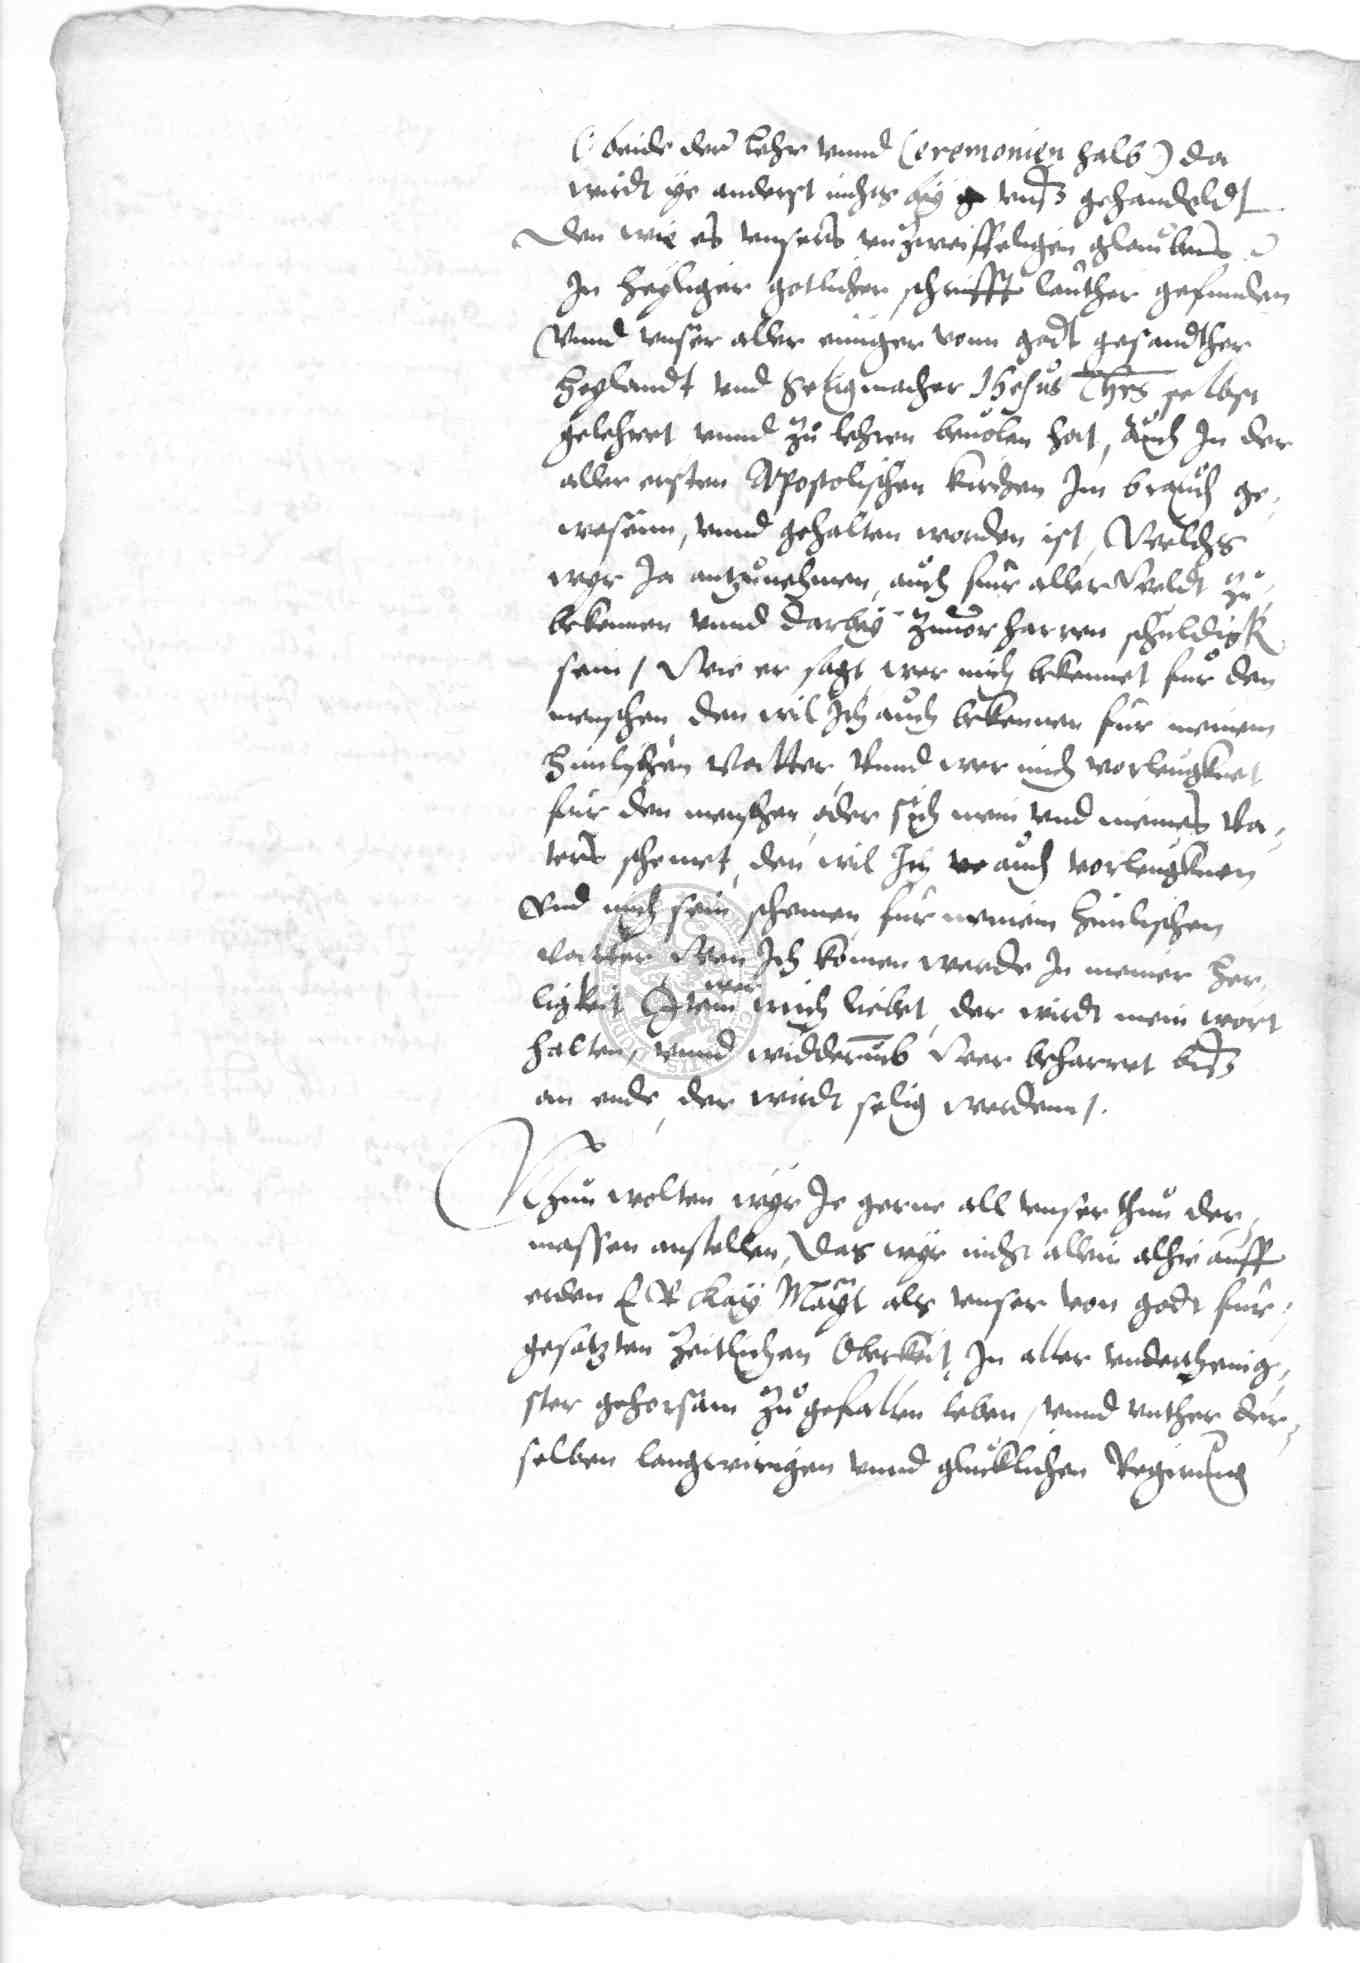 (beide der lehr vnnd Ceremonien halb) da
wirdt ye anderst nichts by vnß gehandeldt
Den wie es vnsers vnzweiffeligen glaubens
In heyliger gotlicher schrifft lauther gefunden
Vnnd vnser aller einiger vonn godt gesandther
heylandt vnd Seligmacher Ihesus Chrs selbst
gelehret vnnd zu lehren beuolen hat, Auch In der
aller ersten Apostolischen kirchen Im brauch ge-
wesenn, vnnd gehalten worden ist, Welchs
wyr Ja antzunehmen, auch fur aller Weldt zu
bekennen vnnd darbey zuuorharren schuldigk
sein / Wie er sagt, wer mich bekennet fur den
menschen, den wil Ich auch bekennen fur meinem
himlischen Vatter, Vnnd wer mich vorleugknet
fur den menschen oder sich mein vnd meines Va-
ters schemet, den wil Ich auch vorleugknen
Vnd mich sein schemen fur meinem himlischen
Vatter Wen Ich komen werde In meiner her-
ligkeit Item wer mich liebet, der wirdt mein wort
halten, vnnd widderumb Wer beharret biß
an ende, der wirdt selig werdenn /.
Nhun wolten wyr Je gerne all vnser thun der-
massen anstellen, Das wyr nicht allein alhie auff
erden E R Kay Mayt als vnser von godt fur-
gesetzten zeitlichen Oberkeit, In aller vnderthenig-
ster gehorsam zu gefallen leben, vnnd vnther der-
selben langwirigen vnnd glucklichen Regirung